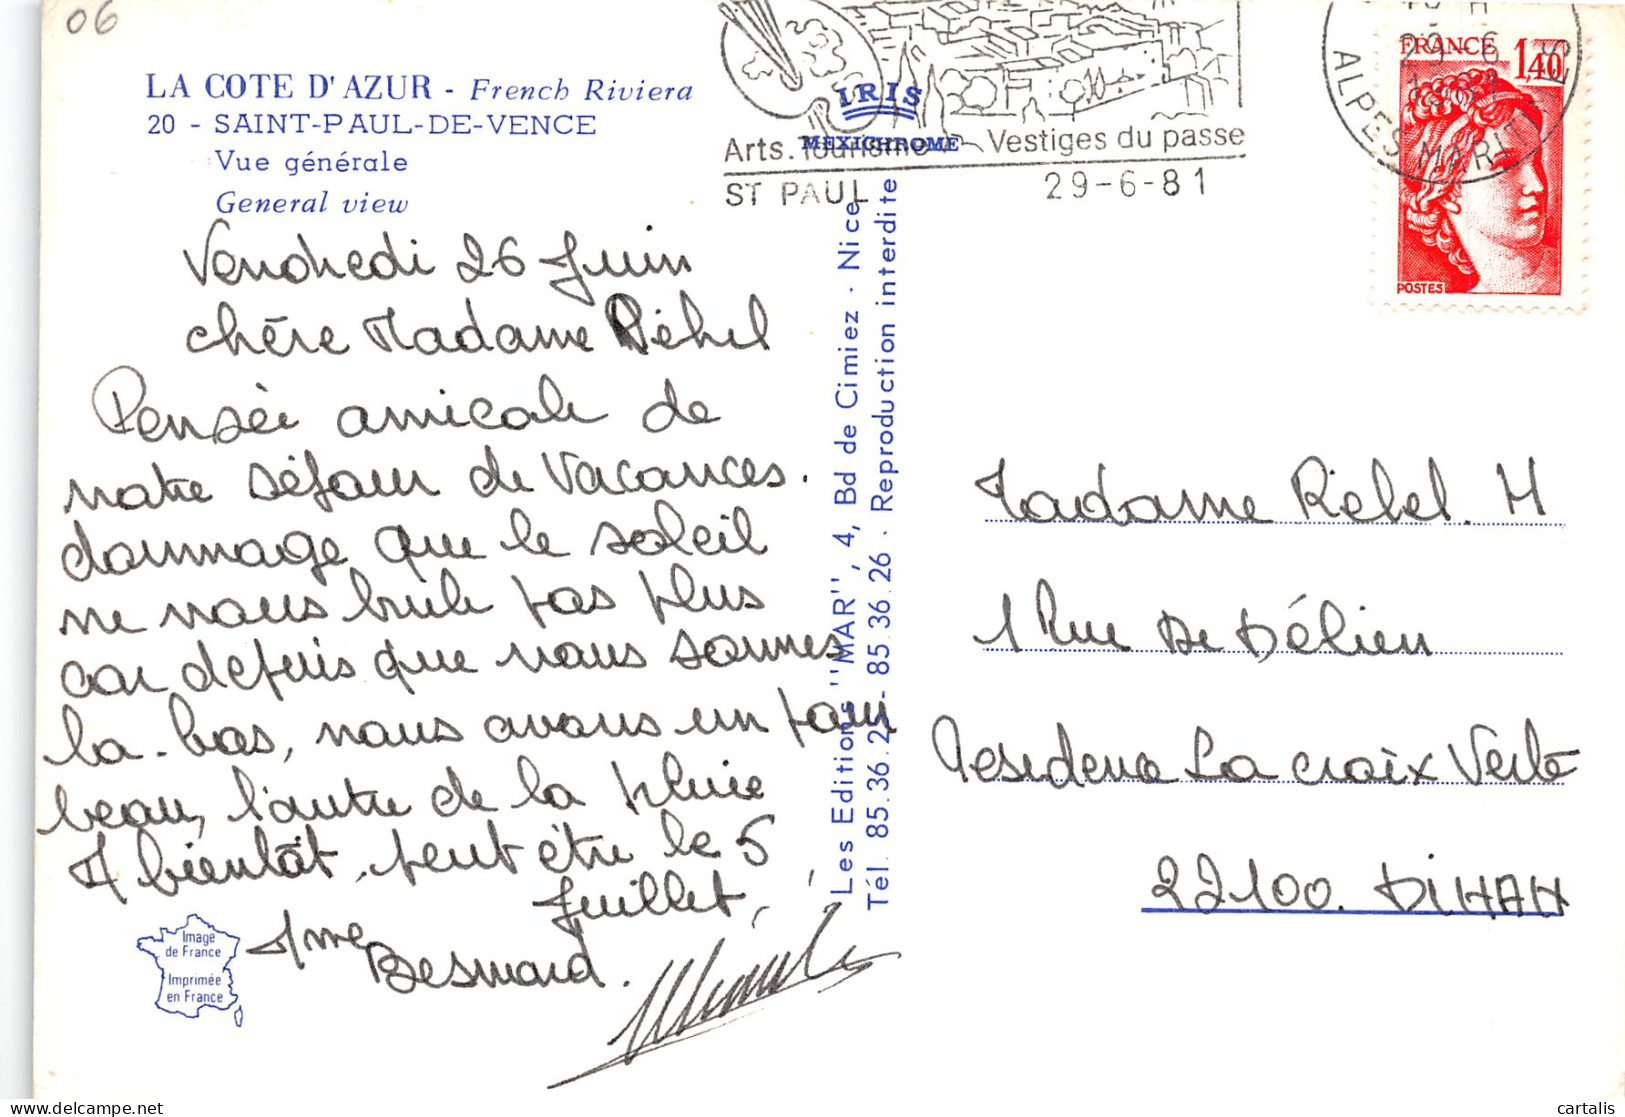 06
LA COTE D'AZUR - French Riviera
20 - SAINT-PAUL-DE-VENCE
Vue générale
General view
Vendredi 26 Juin
chère Madame Réhel
Pensée amicale de
notre séjour de vacances.
dommage que le soleil
ne nous brule pas plus
car depuis que nous sommes
la-bas, nous avons un jour
beau, l'autre de la pluie
A bientôt, peut être le 5
Juillet,
Mme
Besnard.
Image
de France
Imprimée
en France
Les Editions "MAR", 4, Bd de Cimiez - Nice
Tél. 85.36.25 - 85.36.26 - Reproduction interdite
IRIS
MEXICHROME
Arts. Tourisme Vestiges du passe
ST PAUL 29-6-81
29-6
1981
ALPES MARIT
FRANCE 1,40
POSTES
Madame Réhel. M
1 Rue De Délien
Residence La croix Verte
22100. DINAN
cartalis
delcampe.net